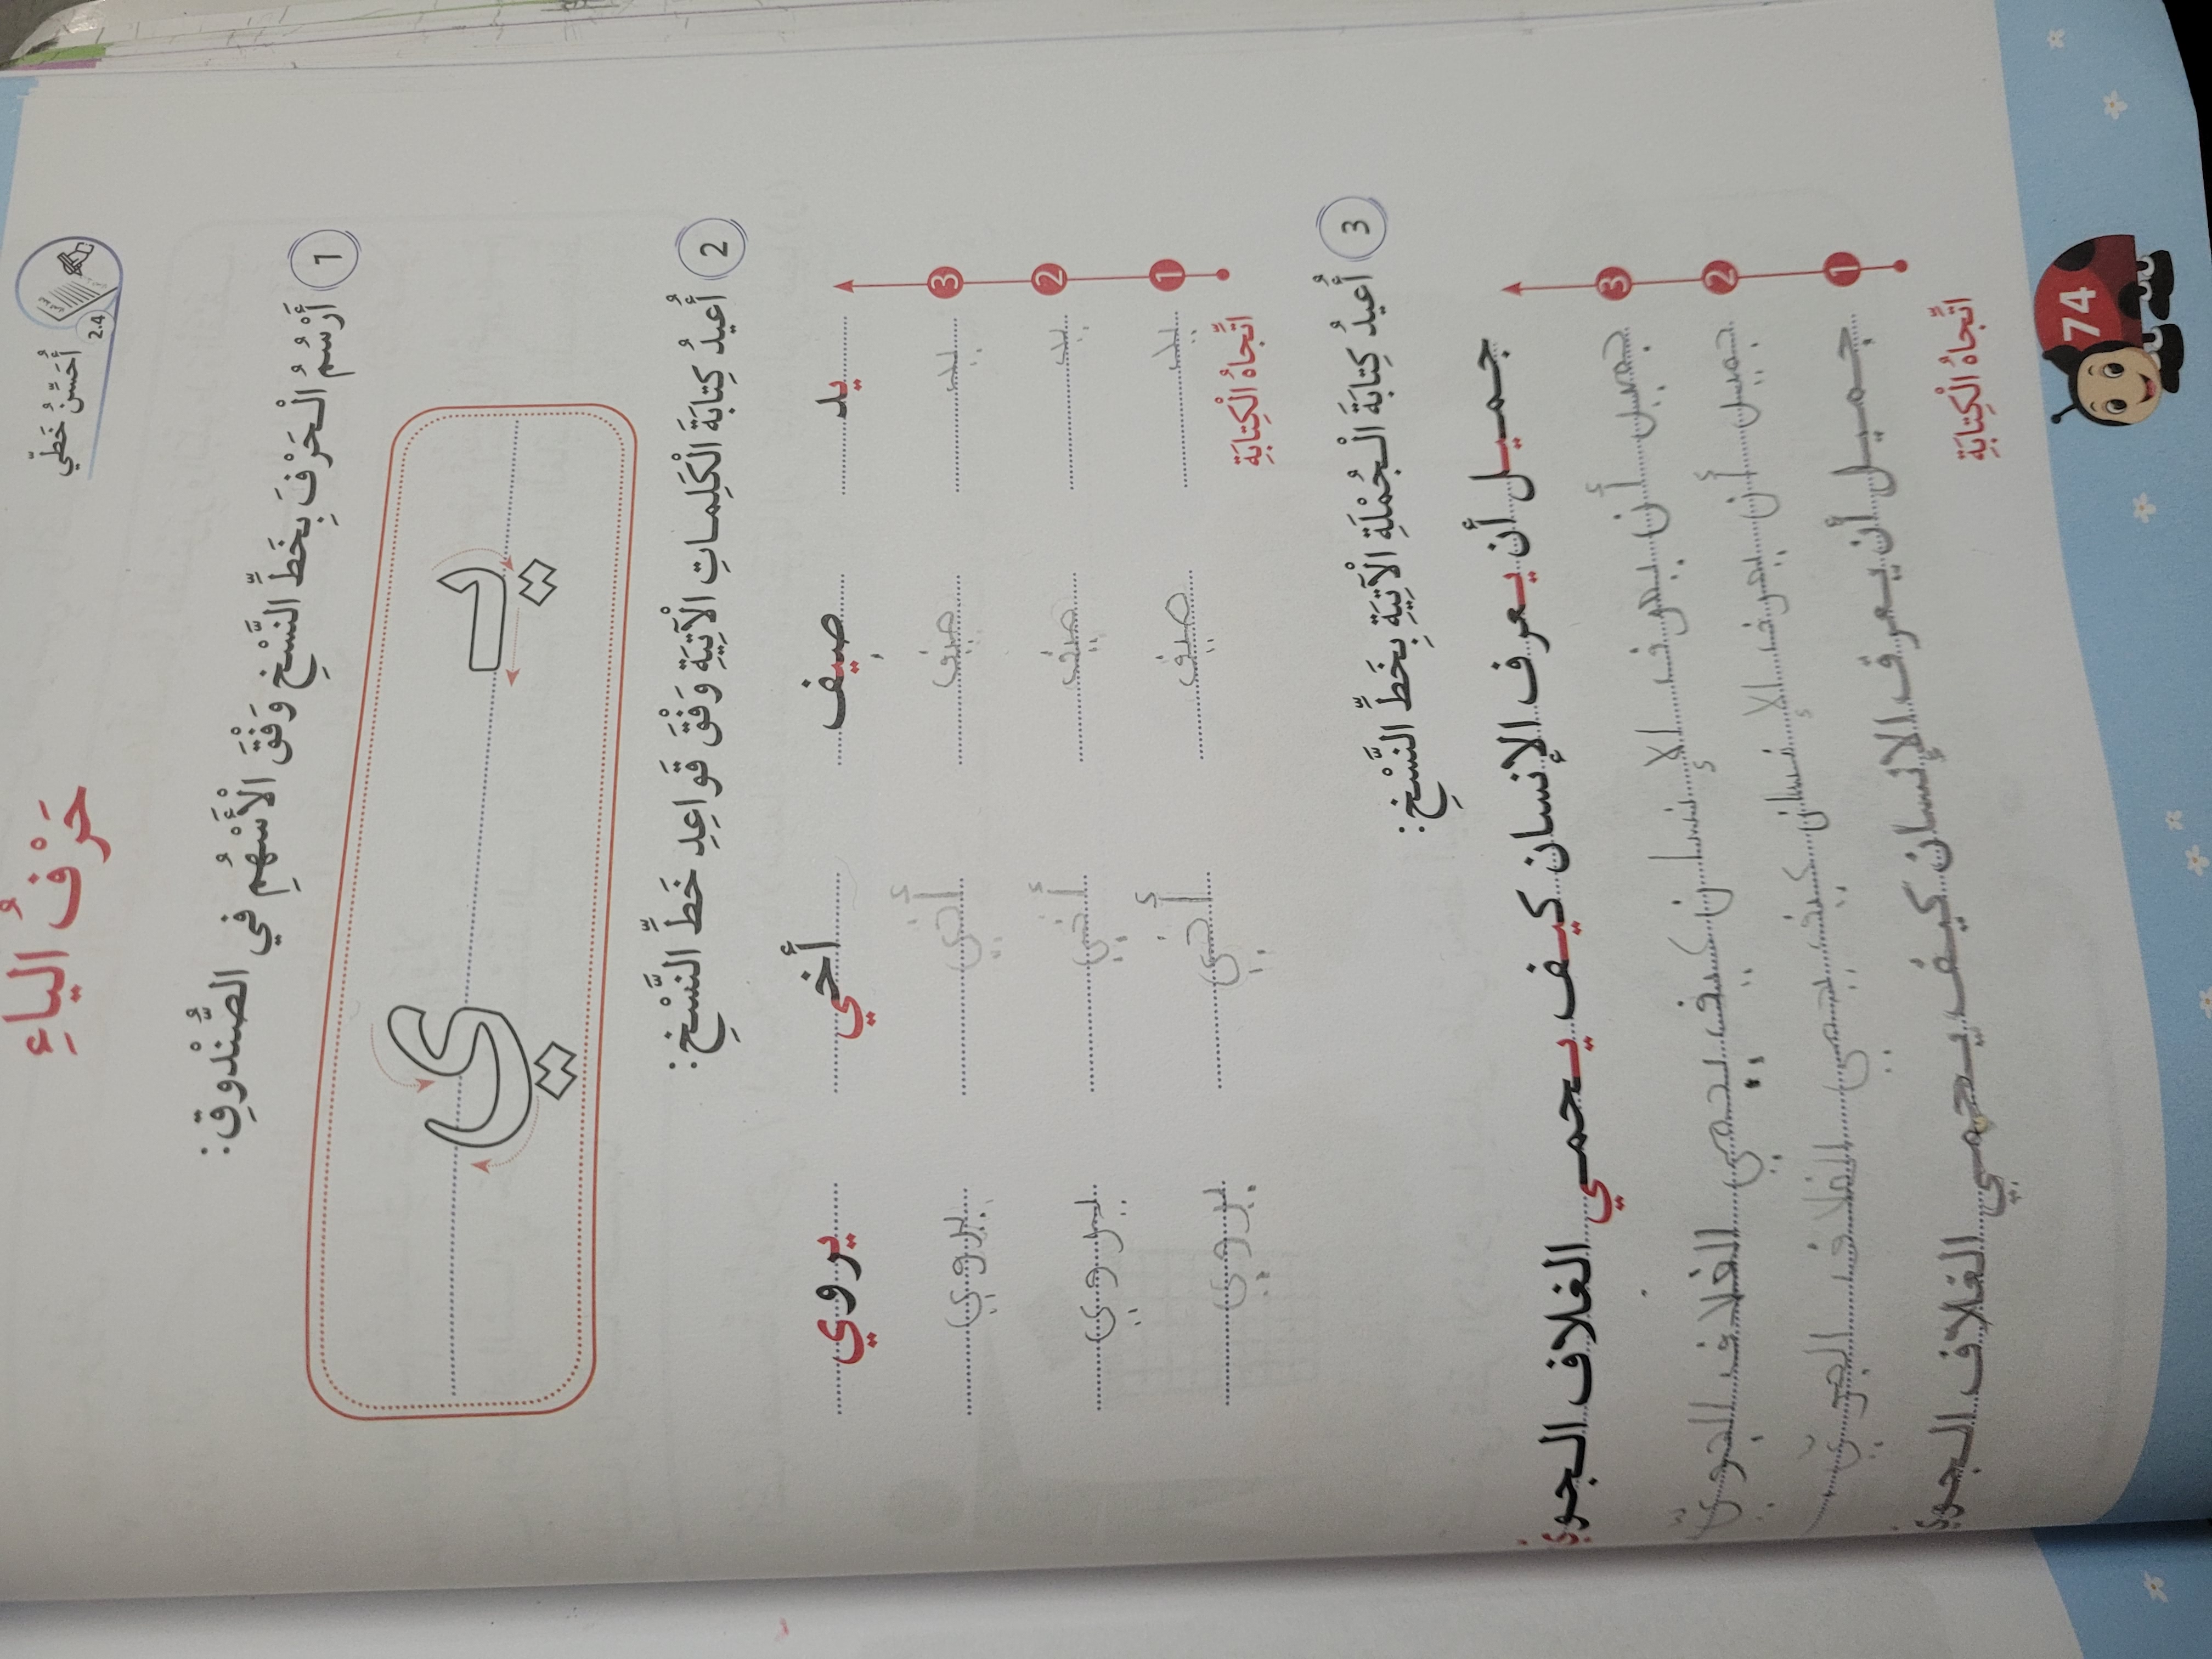 أُحَسِّنُ خَطّي
2.4
حَرْفُ الياءِ
1 أَرْسُمُ الْحَرْفَ بِخَطِّ النَّسْخِ وَفْقَ الْأَسْهُمِ في الصُّنْدوقِ:
يـ ي
2 أُعيدُ كِتابَةَ الْكَلِماتِ الْآتِيَةِ وَفْقَ قَواعِدِ خَطِّ النَّسْخِ:
يد صيف أخي يروي
3 يد صيف أخي يروي
2 يد صيف أخي يروي
1 يد صيف أخي يروي
اتِّجاهُ الْكِتابَةِ
3 أُعيدُ كِتابَةَ الْجُمْلَةِ الْآتِيَةِ بِخَطِّ النَّسْخِ:
جميل أن يعرف الإنسان كيف يحمي الغلاف الجويّ
3 جميل أن يعرف الإنسان كيف يحمي الغلاف الجويّ
2 جميل أن يعرف الإنسان كيف يحمي الغلاف الجويّ
1 جميل أن يعرف الإنسان كيف يحمي الغلاف الجوي
اتِّجاهُ الْكِتابَةِ
74